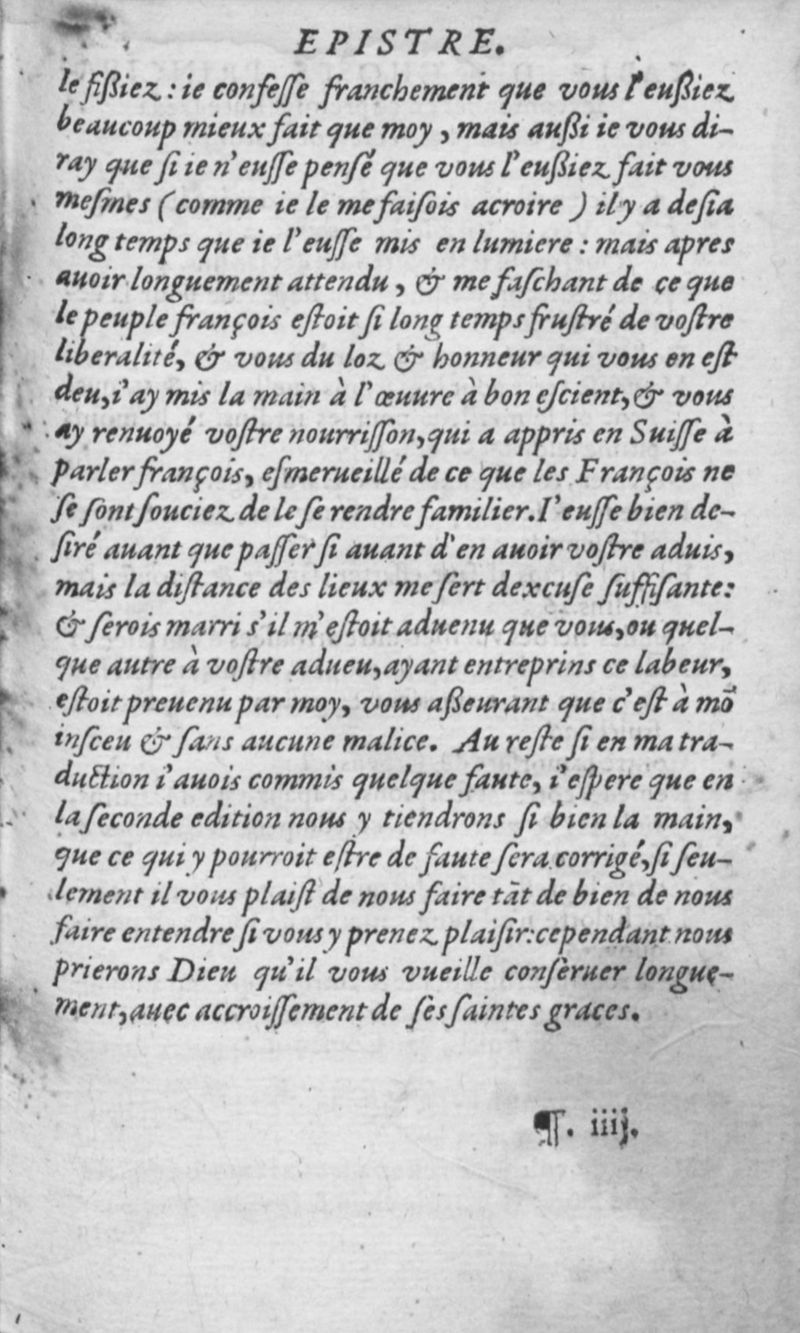 EPISTRE.
le fißiez : ie confeſſe franchement que vous l'eußiez
beaucoup mieux fait que moy , mais außi ie vous di-
ray que ſi ie n'euſſe penſé que vous l'eußiez fait vous
meſmes (comme ie le me faiſois acroire ) il y a deſia
long temps que ie l'euſſe mis en lumiere : mais apres
auoir longuement attendu , & me faſchant de ce que
le peuple françois eſtoit ſi long temps fruſtré de voſtre
liberalité, & vous du loz & honneur qui vous en eſt
deu, i'ay mis la main à l'œuure à bon eſcient, & vous
ay renuoyé voſtre nourriſſon, qui a appris en Suiſſe à
parler françois, eſmerueillé de ce que les François ne
ſe ſont ſouciez de le ſe rendre familier. I'euſſe bien de-
ſiré auant que paſſer ſi auant d'en auoir voſtre aduis,
mais la diſtance des lieux me ſert dexcuſe ſuffiſante:
& ſerois marri s'il m'eſtoit aduenu que vous, ou quel-
que autre à voſtre adueu, ayant entreprins ce labeur,
eſtoit preuenu par moy, vous aßeurant que c'eſt à mõ
inſceu & ſans aucune malice. Au reſte ſi en ma tra-
duction i'auois commis quelque faute, i'eſpere que en
la ſeconde edition nous y tiendrons ſi bien la main,
que ce qui y pourroit eſtre de faute ſera corrigé, ſi ſeu-
lement il vous plaiſt de nous faire tãt de bien de nous
faire entendre ſi vous y prenez plaiſir: cependant nous
prierons Dieu qu'il vous vueille conſeruer longue-
ment, auec accroiſſement de ſes ſaintes graces.
¶. iiij.